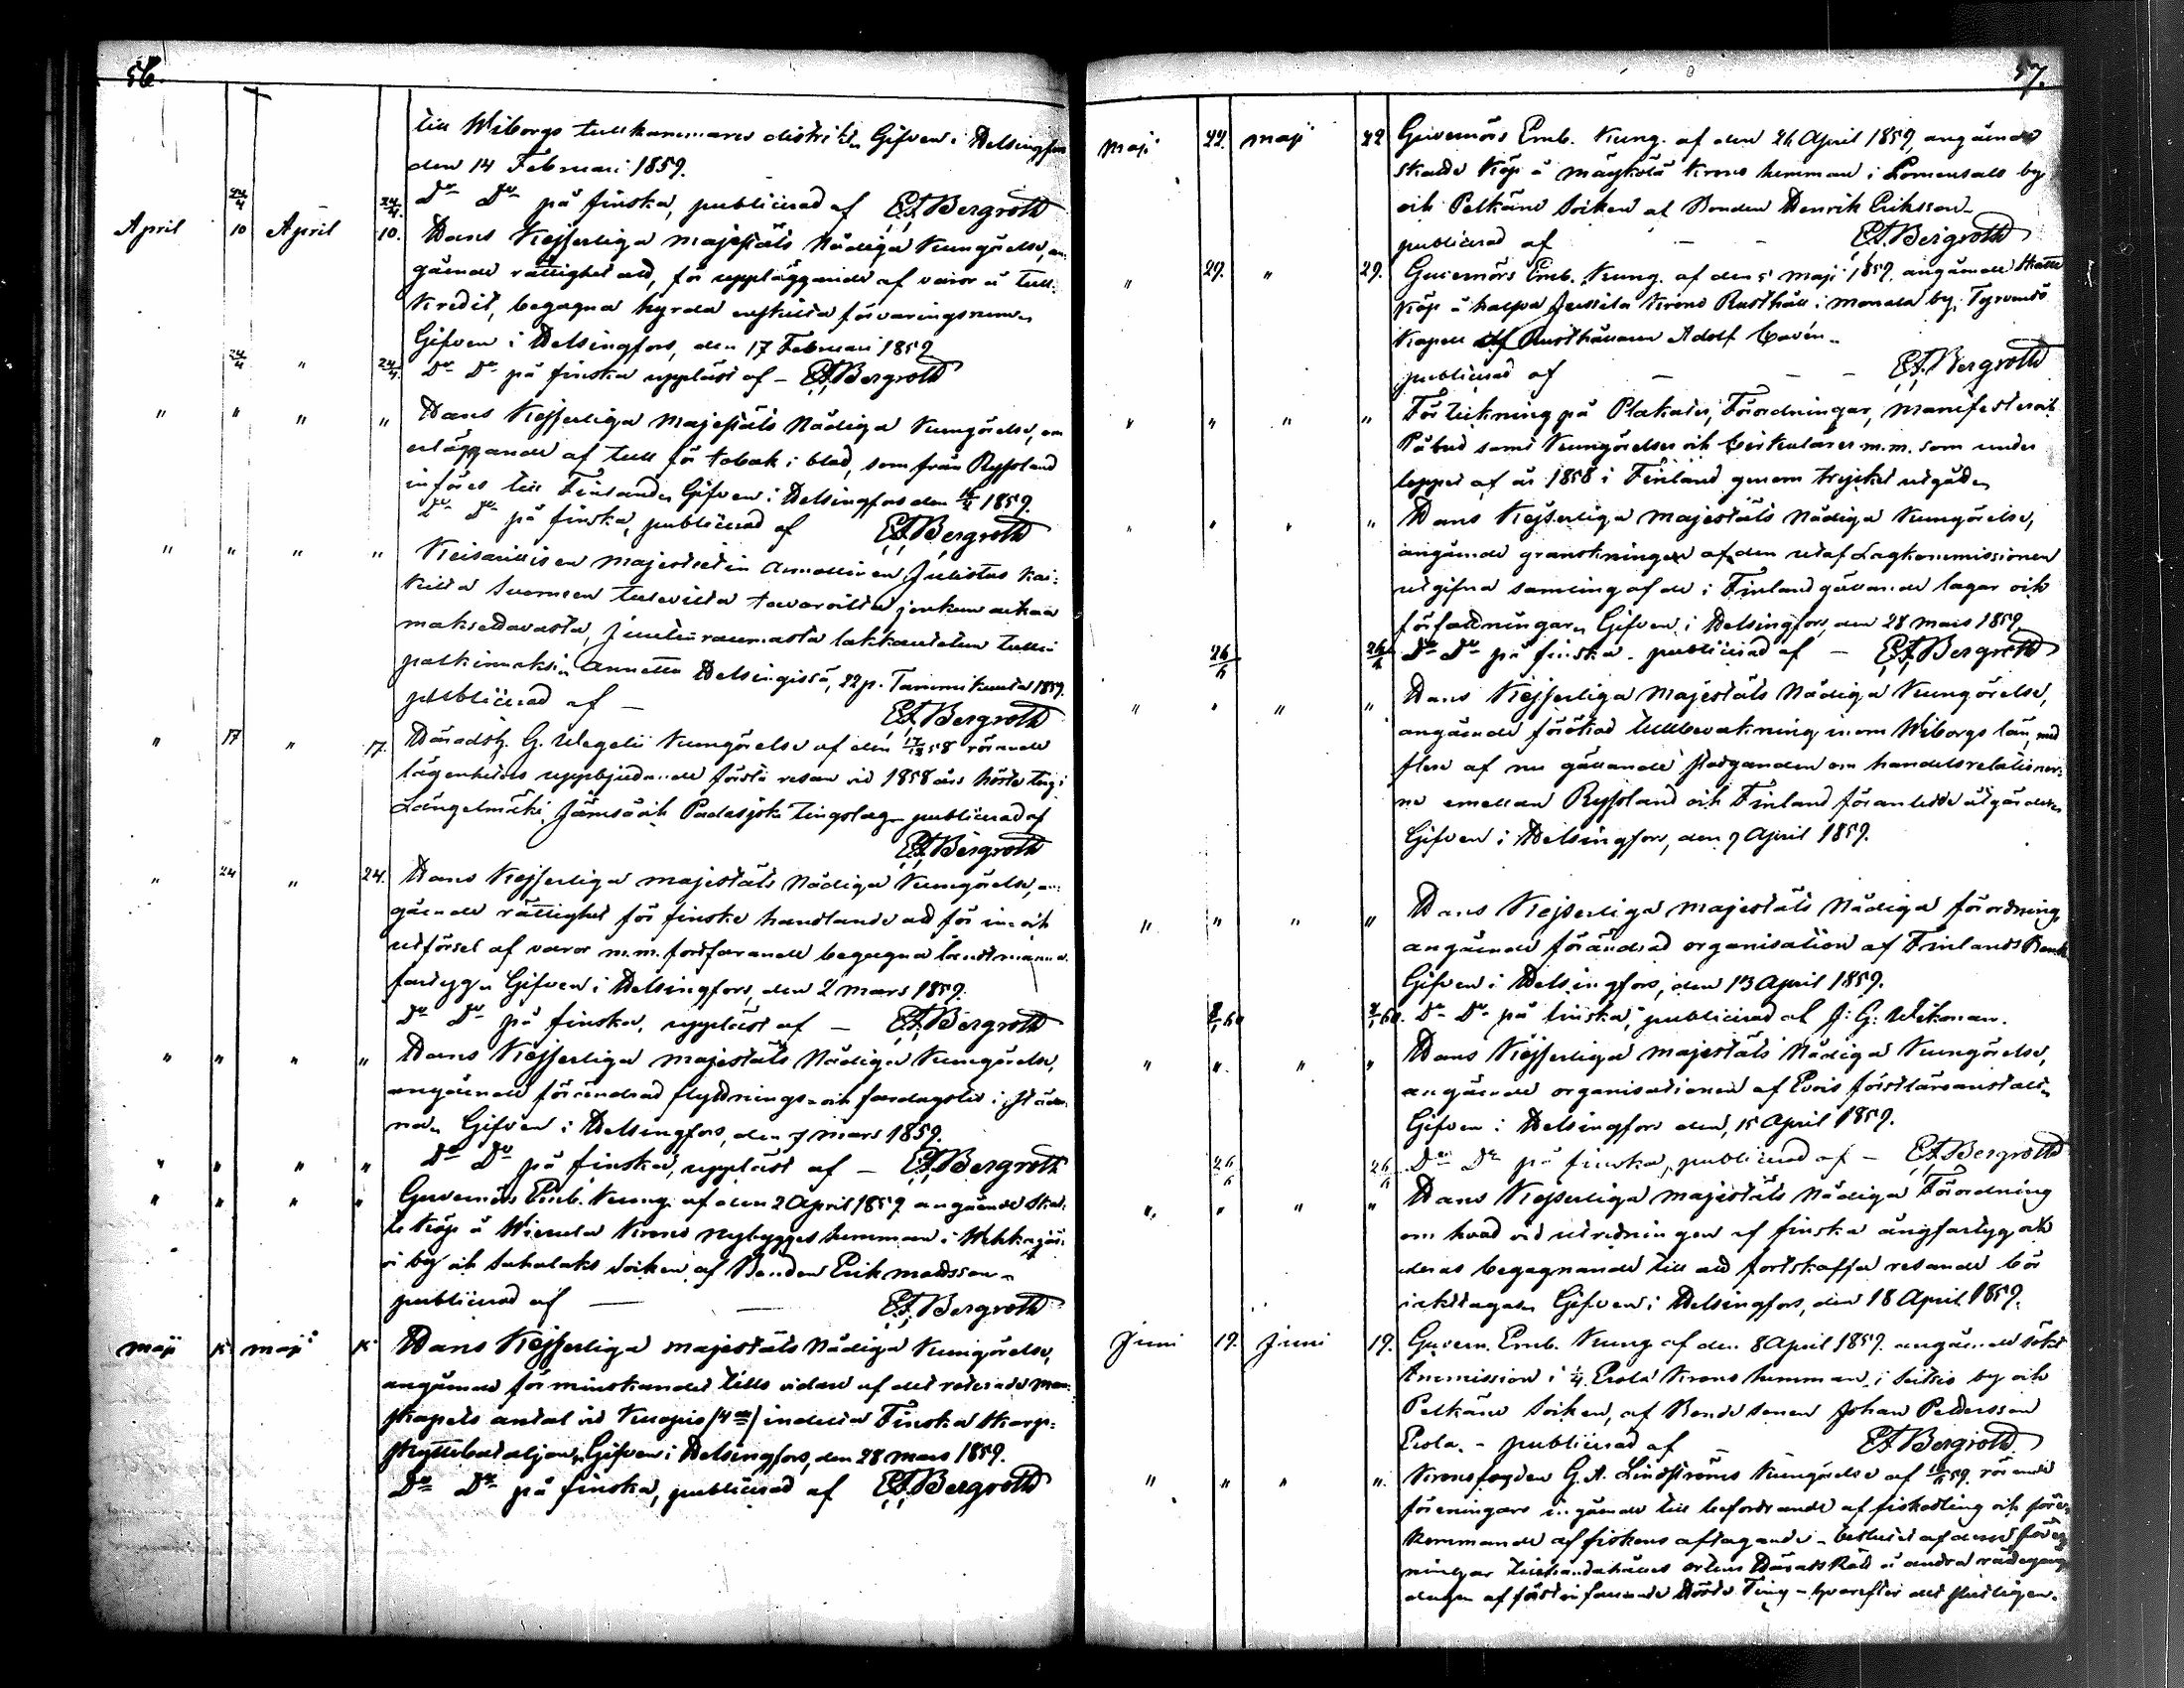 56.
till Wiborgs tullkammares distrikt„ Gifven i Helsingfors
den 14 Februari 1859.
24/4 24/4. Do Do på finska, publicerad af E.F. Bergroth
April 10 April 10. Hans Kejserliga Majestäts Nådiga Kungörelse, an-
gående rättighet att, för uppläggande af varor å tull-
kredit, begagna hyrda enskilda förvaringsrum„
Gifven i Helsingfors, den 17 Februari 1859
24/4 " 24/4. Do Do på finska uppläst af – E.F. Bergroth
" " " " Hans Kejserliga Majestäts Nådiga Kungörelse, om
erläggande af tull för tobak i blad, som från Ryssland
införes till Finland„ Gifven i Helsingfors den 1859.
Do Do på finska, publicerad af E.F. Bergroth
" " " " Keisarillisen Majesteetin Armollinen Julistus kai-
kilta Suomeen tulevilta tavaroilta jonkun aikaa
maksettavasta, tulli
palkinnoksi„ Annettu Helsingissä, 22 p. Tammikuuta 1859.
publicerad af – E.F. Bergroth
" 17 " 17. Häradsh. G. Wegelii Kungörelse af den 58 rörande
lägenheters uppbjudande första resan vid 1858 års höste ting i
Längelmäki, Jämsä och Padasjoki tingslag – publicerad af
E.F. Bergroth
" 24 " 24. Hans Kejserliga Majestäts Nådiga Kungörelse, an-
gående rättighet för finske handlande att för in- och
utförsel af varor m.m. fortfarande begagna landtmanna
fartyg„ Gifven i Helsingfors, den 2 Mars 1859.
Do Do på finska, uppläst af – E.F. Bergroth
" " " " Hans Kejserliga Majestäts Nådiga Kungörelse,
angående förändrad flyttnings- och fardagstid i städer-
na„ Gifven i Helsingfors, den 7 Mars 1859.
" " " " Do Do på finska, uppläst af – E.F. Bergroth
" " " " Guvernörs Emb. Kung. af den 2 April 1859 angående skat-
te köp å Wierula Krono nybygges hemman i Wehkajär-
vi by och Sahalaks socken af Bonden Erik Mattsson –
publicerad af – E.F. Bergroth
Maji 15 Maji 15 Hans Kejserliga Majestäts Nådiga Kungörelse,
angående förminskandet tills vidare af det roterade man-
skapets antal vid Kuopio (4de) indelta Finska Skarp-
skyttebataljon„ Gifven i Helsingfors, den 28 Mars 1859.
Do Do på finska, publicerad af E.F. Bergroth
57.
Maji 22 Maji 22 Guvernörs Emb. Kung. af den 26 April 1859, angående
skatte köp å Mäykölä Krono hemman i by
och Pelkäne Socken af Bonden Henrik Eriksson –
publicerad af – – E.F. Bergroth
" 29. " 29. Guvernörs Emb. Kung. af den 5 Maji 1859. angående skatte
köp å halfva Jussila Krono Rusthåll i by, Tyrvändö
Kapell af Rusthållaren Adolf Cavén –
publicerad af – – – E.F. Bergroth
" " " " Förteckning på Plakater, Förordningar, Manifester och
Påbud samt Kungörelser och Cirkulärer m.m. som under
loppet af år 1858 i Finland genom trycket utgått„
" " " " Hans Kejserliga Majestäts Nådiga Kungörelse,
angående granskningen af den utaf Lagkommissionen
utgifna samling af de i Finland gällande lagar och
författningar„ Gifven i Helsingfors, den 28 Mars 1859.
26/5 26/5 Do Do på finska – publicerad af – E.F. Bergroth
" " " " Hans Kejserliga Majestäts Nådiga Kungörelse,
angående förökad tullbevakning inom Wiborgs län, med
flere af nu gällande stadganden om handelsrelationer-
na emellan Ryssland och Finland föranledde åtgärder„
Gifven i Helsingfors, den 9 April 1859.
" " " " Hans Kejserliga Majestäts Nådiga förordning,
angående förändrad organisation af Finlands Bank
Gifven i Helsingfors, den 13 April 1859.
8/1 60 8/1 60. Do Do på finska, publicerad af J: G: Wikman.
" " " " Hans Kejserliga Majestäts Nådiga Kungörelse,
angående organisationen af Evois forstläroanstalt„
Gifven i Helsingfors den, 15 April 1859.
26/5 26/5 Do Do på finska, publicerad af – E.F. Bergroth
" " " " Hans Kejserliga Majestäts Nådiga Förordning
om hvad vid utredningen af finska ångfartyg och
deras begagnande till att fortskaffa resande bör
iakttagas„ Gifven i Helsingfors, den 18 April 1859.
Juni 19. Juni 19. Guvern. Emb. Kung af den 8 April 1859. angående sökt
Immission i 1/4 Erola Krono hemman, i Seitsis by och
Pelkäne Socken, af Bonde sonen Johan Pettersson
Erola. – publicerad af – E.F. Bergroth
" " " " Kronofogden G.A. Lindströms Kungörelse af 59. rörande
föreningars ingående till befordrande af fiskodling och före-
kommande af fiskens aftagande –
ningar tillhandahålles ortens Häradsrätt å andra rättegångs
dagen af först infallande Höste Ting – hvarefter det slutligen.